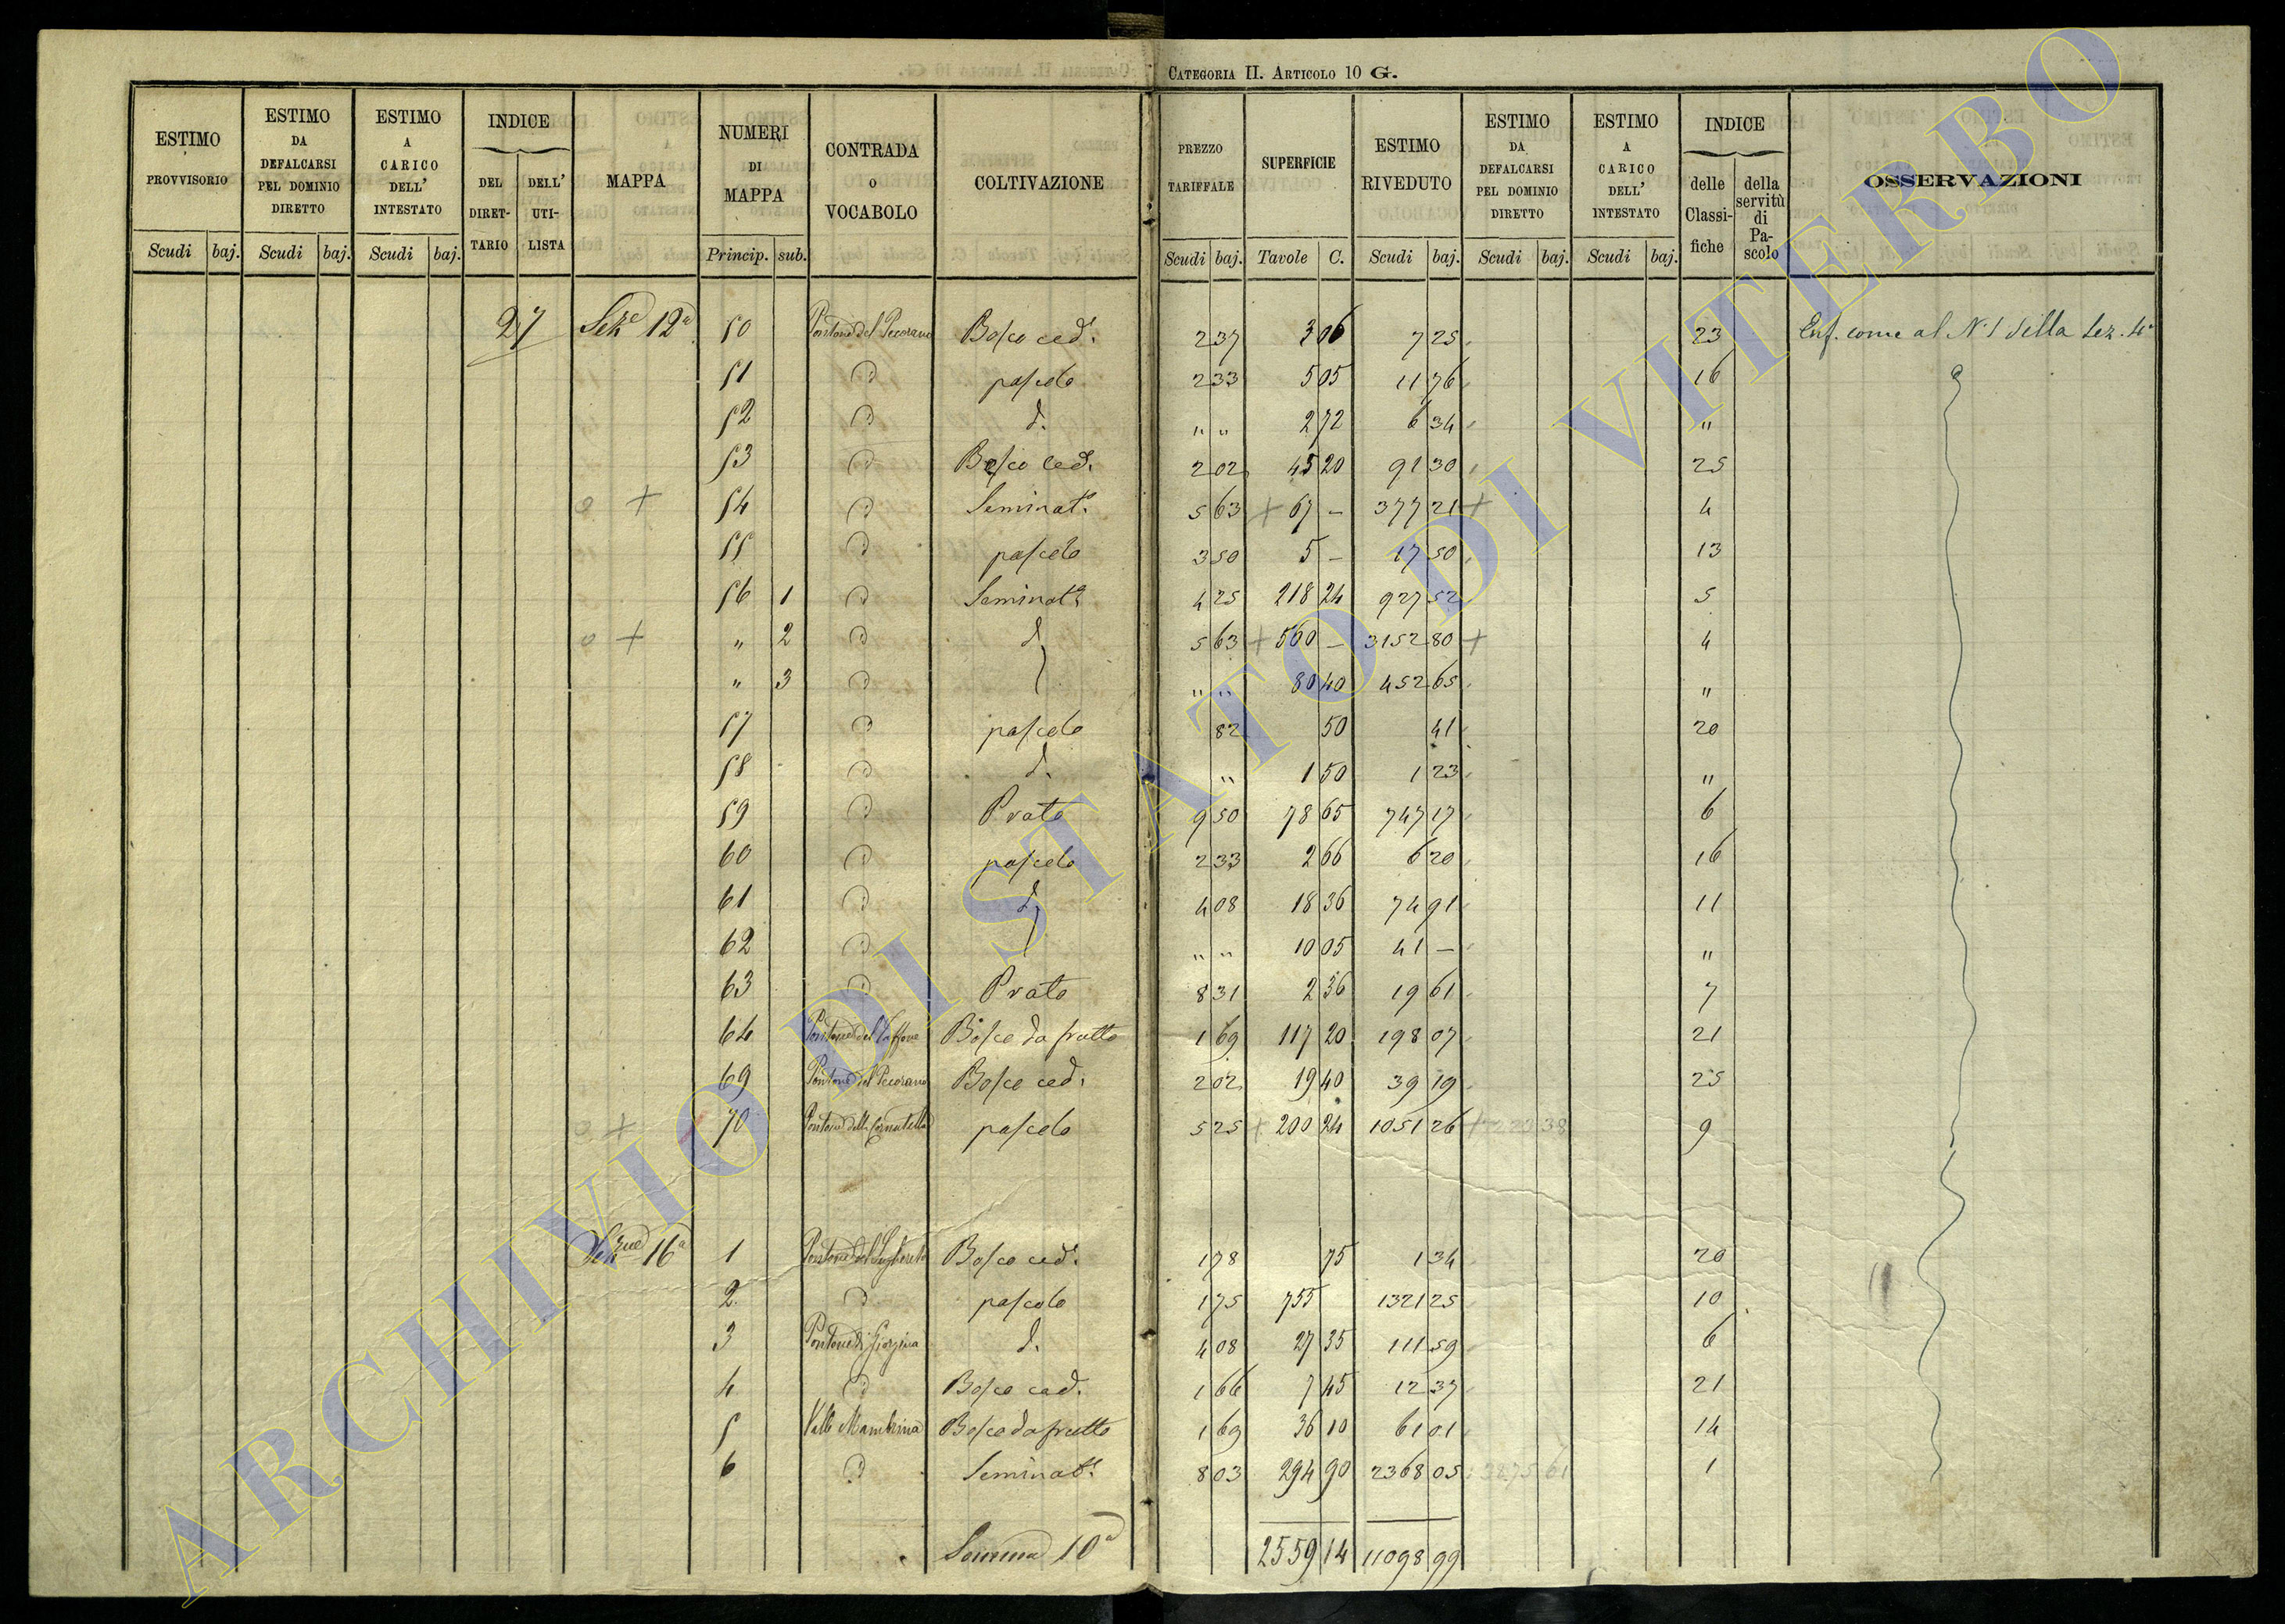 CATEGORIA II. ARTICOLO 10 G.
ESTIMO PROVVISORIO Scudi baj.
ESTIMO DA DEFALCARSI PEL DOMINIO DIRETTO Scudi baj.
ESTIMO A CARICO DELL' INTESTATO Scudi baj.
INDICE DEL DIRETTARIO DELL' UTILISTA
MAPPA
NUMERI DI MAPPA Princip. sub.
CONTRADA O VOCABOLO
COLTIVAZIONE
PREZZO TARIFFALE Scudi baj.
SUPERFICIE Tavole C.
ESTIMO RIVEDUTO Scudi baj.
ESTIMO DA DEFALCARSI PEL DOMINIO DIRETTO Scudi baj.
ESTIMO A CARICO DELL' INTESTATO Scudi baj.
INDICE delle Classifiche della servitù di Pascolo
OSSERVAZIONI
27 Sezᵉ 12ª 50 Pontone del Pecoraro Bosco ced. 2 37 3 06 7 25 23 Enf. come al N. 1 della Sez. 4ª
51 d pascolo 2 33 5 05 11 76 16
52 d d. " " 2 72 6 34 "
53 d Bosco ced. 2 02 45 20 91 30 25
+ 54 d Seminat. 5 63 + 67 — 377 21 + 4
55 d pascolo 3 50 5 — 17 50 13
56 1 d Seminat. 4 25 218 24 927 52 5
+ " 2 d d 5 63 + 560 — 3152 80 + 4
" 3 d " " 80 40 452 65 "
57 d pascolo 82 50 41 20
58 d d. " 1 50 1 23 "
59 d Prato 9 50 78 65 747 17 6
60 d pascolo 2 33 2 66 6 20 16
61 d d 4 08 18 36 74 91 11
62 d " " 10 05 41 — "
63 d Prato 8 31 2 36 19 61 7
64 Pontone del Bosco da frutto 1 69 117 20 198 07 21
69 Pontone del Pecoraro Bosco ced. 2 02 19 40 39 19 25
+ 70 Pontone della Cornatella pascolo 5 25 + 200 24 1051 26 + 9
Sezione 16ª 1 Pontone del Bosco ced. 1 78 75 1 34 20
2 d pascolo 1 75 755 1321 25 10
3 Pontone di d. 4 08 27 35 111 59 6
4 d Bosco ced. 1 66 7 45 12 37 21
5 Valle Mambrina Bosco da frutto 1 69 36 10 61 01 14
6 d Seminat. 8 03 294 90 2368 05 3875 61 1
Somma 10ª 2559 14 11098 99
ARCHIVIO DI STATO DI VITERBO